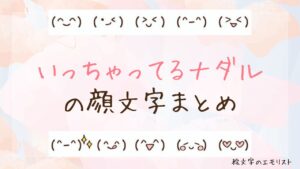 (^‿^) (•ᴗ-) (>ᴗ<) (^-^) (>ᴗ<)
いっちゃってるナダル
の顔文字まとめ
(^-^)✨ (^ᴗ^) (^▽^) (◡‿◡) (♡ᴗ♡)
絵文字のエモリスト